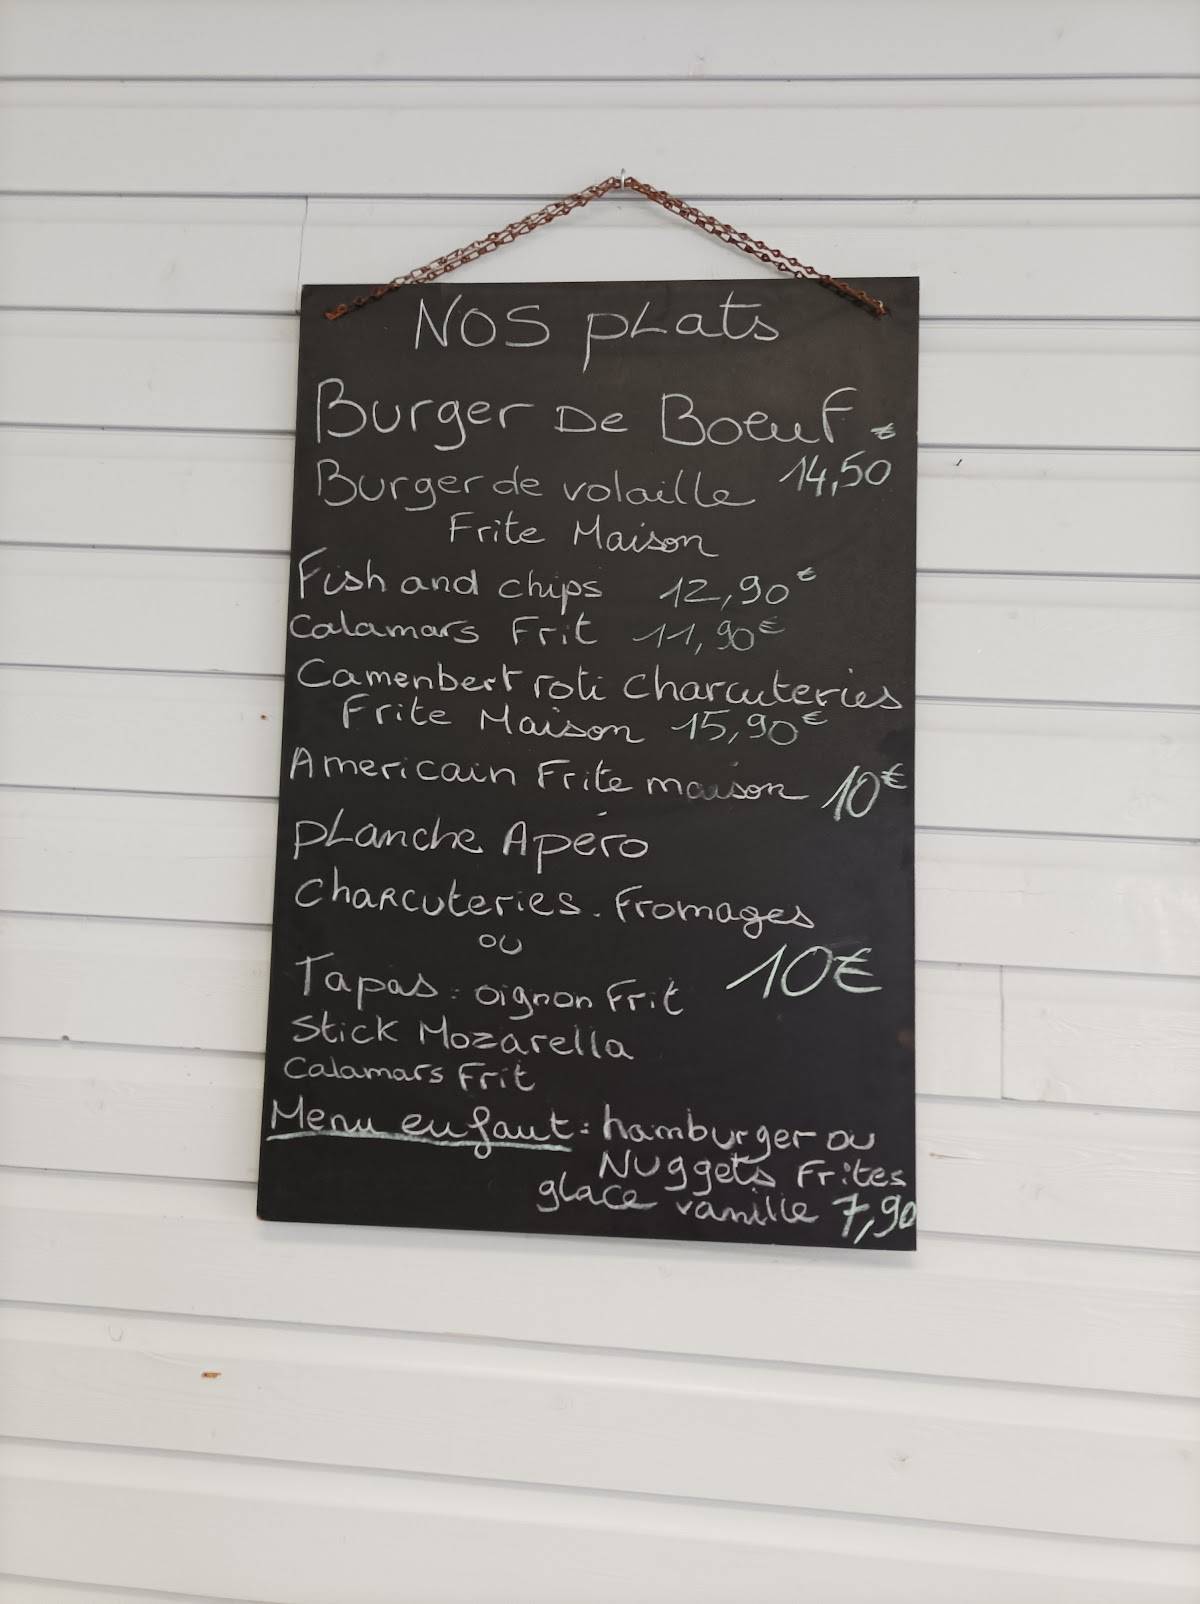 NOS pLats
Burger De Boeuf €
Burger de volaille 14,50
Frite Maison
Fish and chips 12,90€
Calamars Frit 11,90€
Camenbert roti charcuteries
Frite Maison 15,90€
Americain Frite maison 10€
pLanche Apéro
CHARCUTERIES. Fromages
ou
Tapas : oignon Frit 10€
Stick Mozarella
Calamars Frit
Menu enfant : hamburger ou
Nuggets Frites
glace vanille 7,90